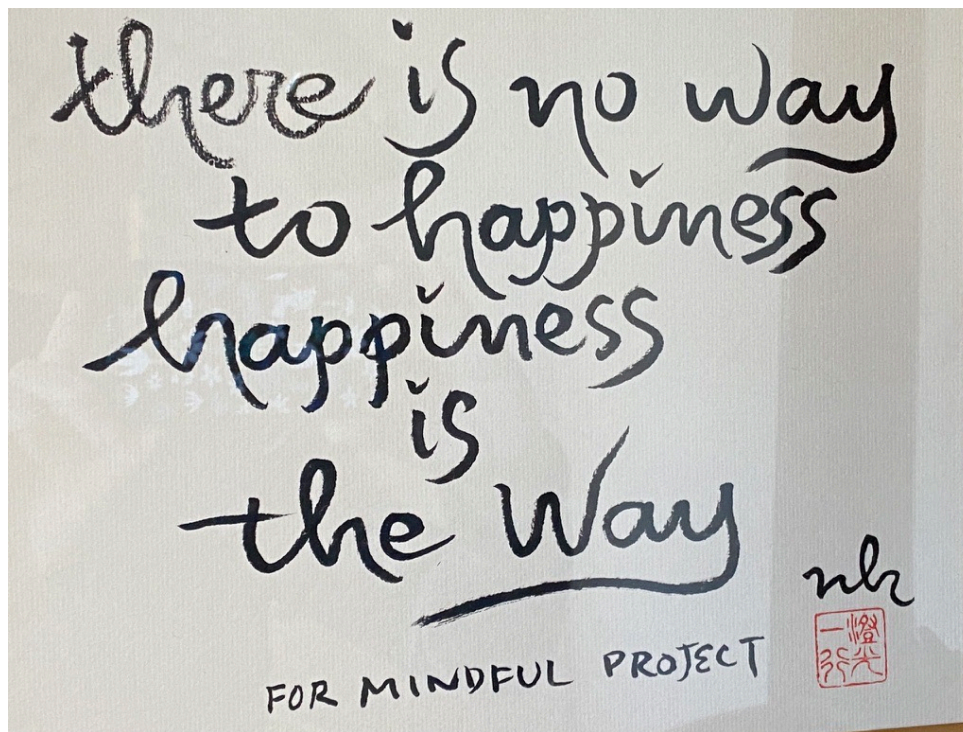 there is no way
to happiness
happiness
is
the Way
nh
FOR MINDFUL PROJECT
澄光
一行